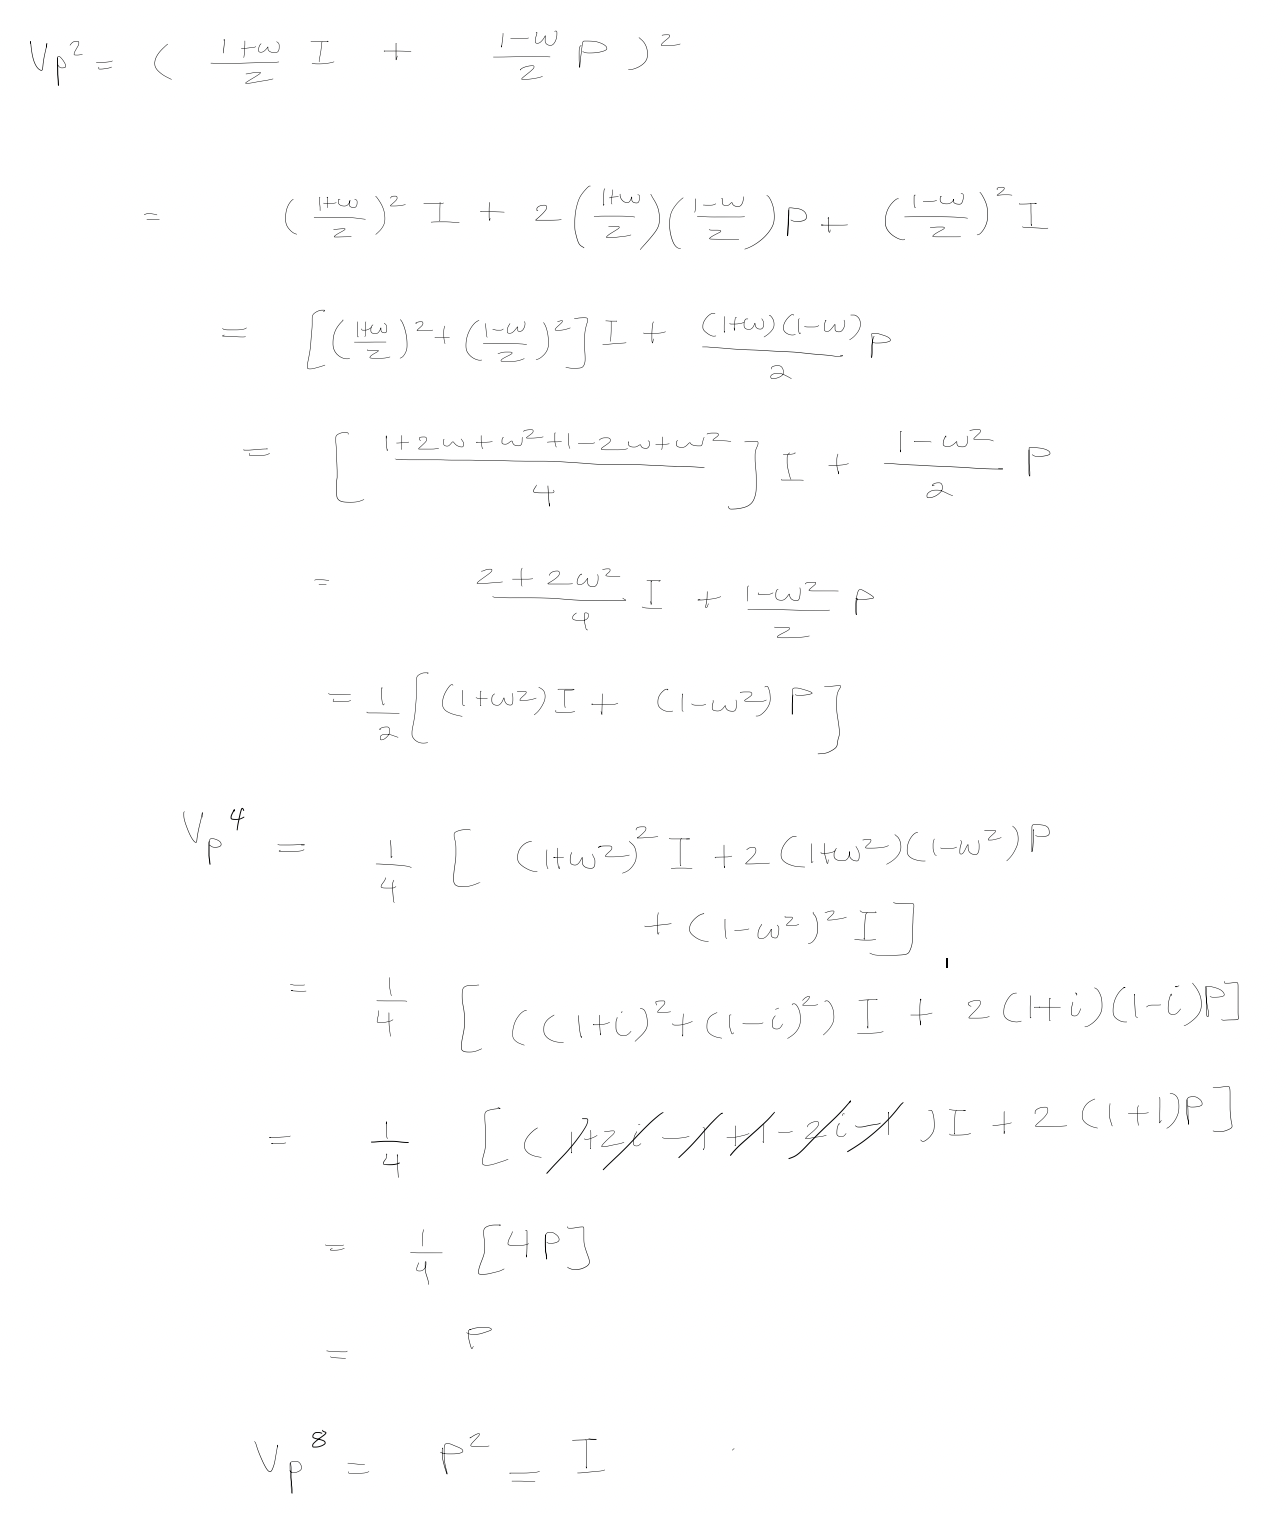 V_p² = ( (1+ω)/2 I + (1-ω)/2 P )²
= ((1+ω)/2)² I + 2((1+ω)/2)((1-ω)/2)P + ((1-ω)/2)² I
= [((1+ω)/2)² + ((1-ω)/2)²] I + (1+ω)(1-ω)/2 P
= [(1+2ω+ω²+1-2ω+ω²)/4] I + (1-ω²)/2 P
= (2+2ω²)/4 I + (1-ω²)/2 P
= 1/2 [(1+ω²)I + (1-ω²)P]
V_p⁴ = 1/4 [(1+ω²)² I + 2(1+ω²)(1-ω²)P
+ (1-ω²)² I]
= 1/4 [((1+i)²+(1-i)²) I + 2(1+i)(1-i)P]
= 1/4 [(1+2i-1+1-2i-1)I + 2(1+1)P]
= 1/4 [4P]
= P
V_p⁸ = P² = I